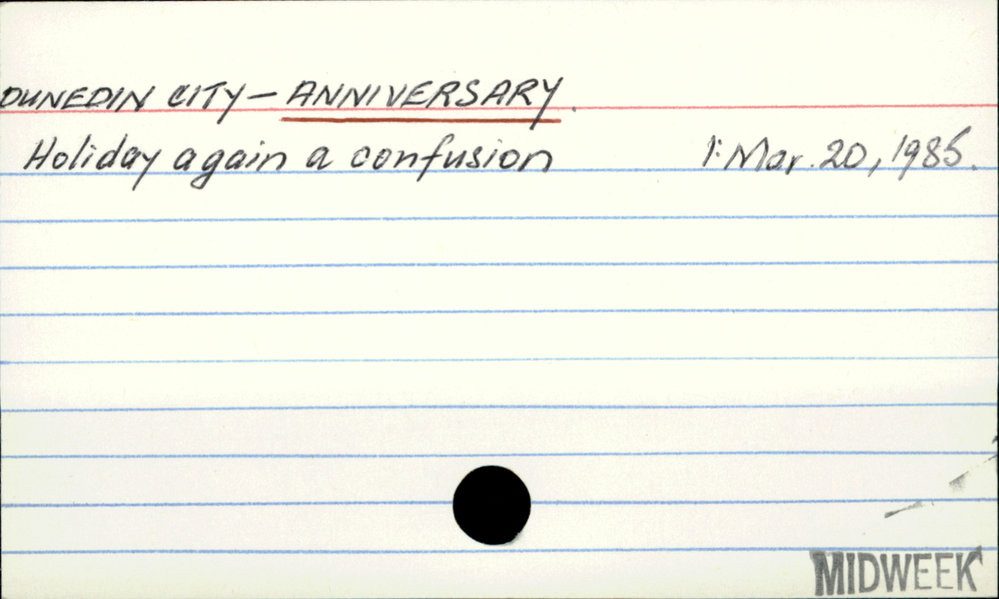 DUNEDIN CITY - ANNIVERSARY.
Holiday again a confusion 1: Mar. 20, 1985.
MIDWEEK